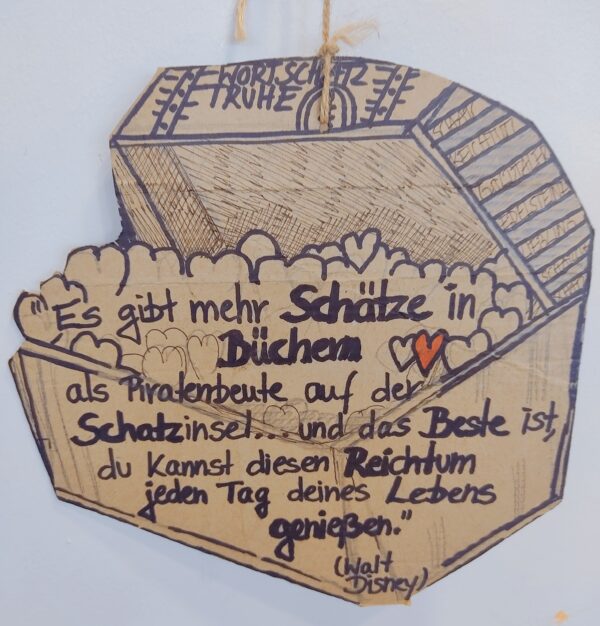 WORTSCHATZ
TRUHE
"Es gibt mehr Schätze in
Büchern
als Piratenbeute auf der
Schatzinsel... und das Beste ist,
du kannst diesen Reichtum
jeden Tag deines Lebens
genießen."
(Walt
Disney)